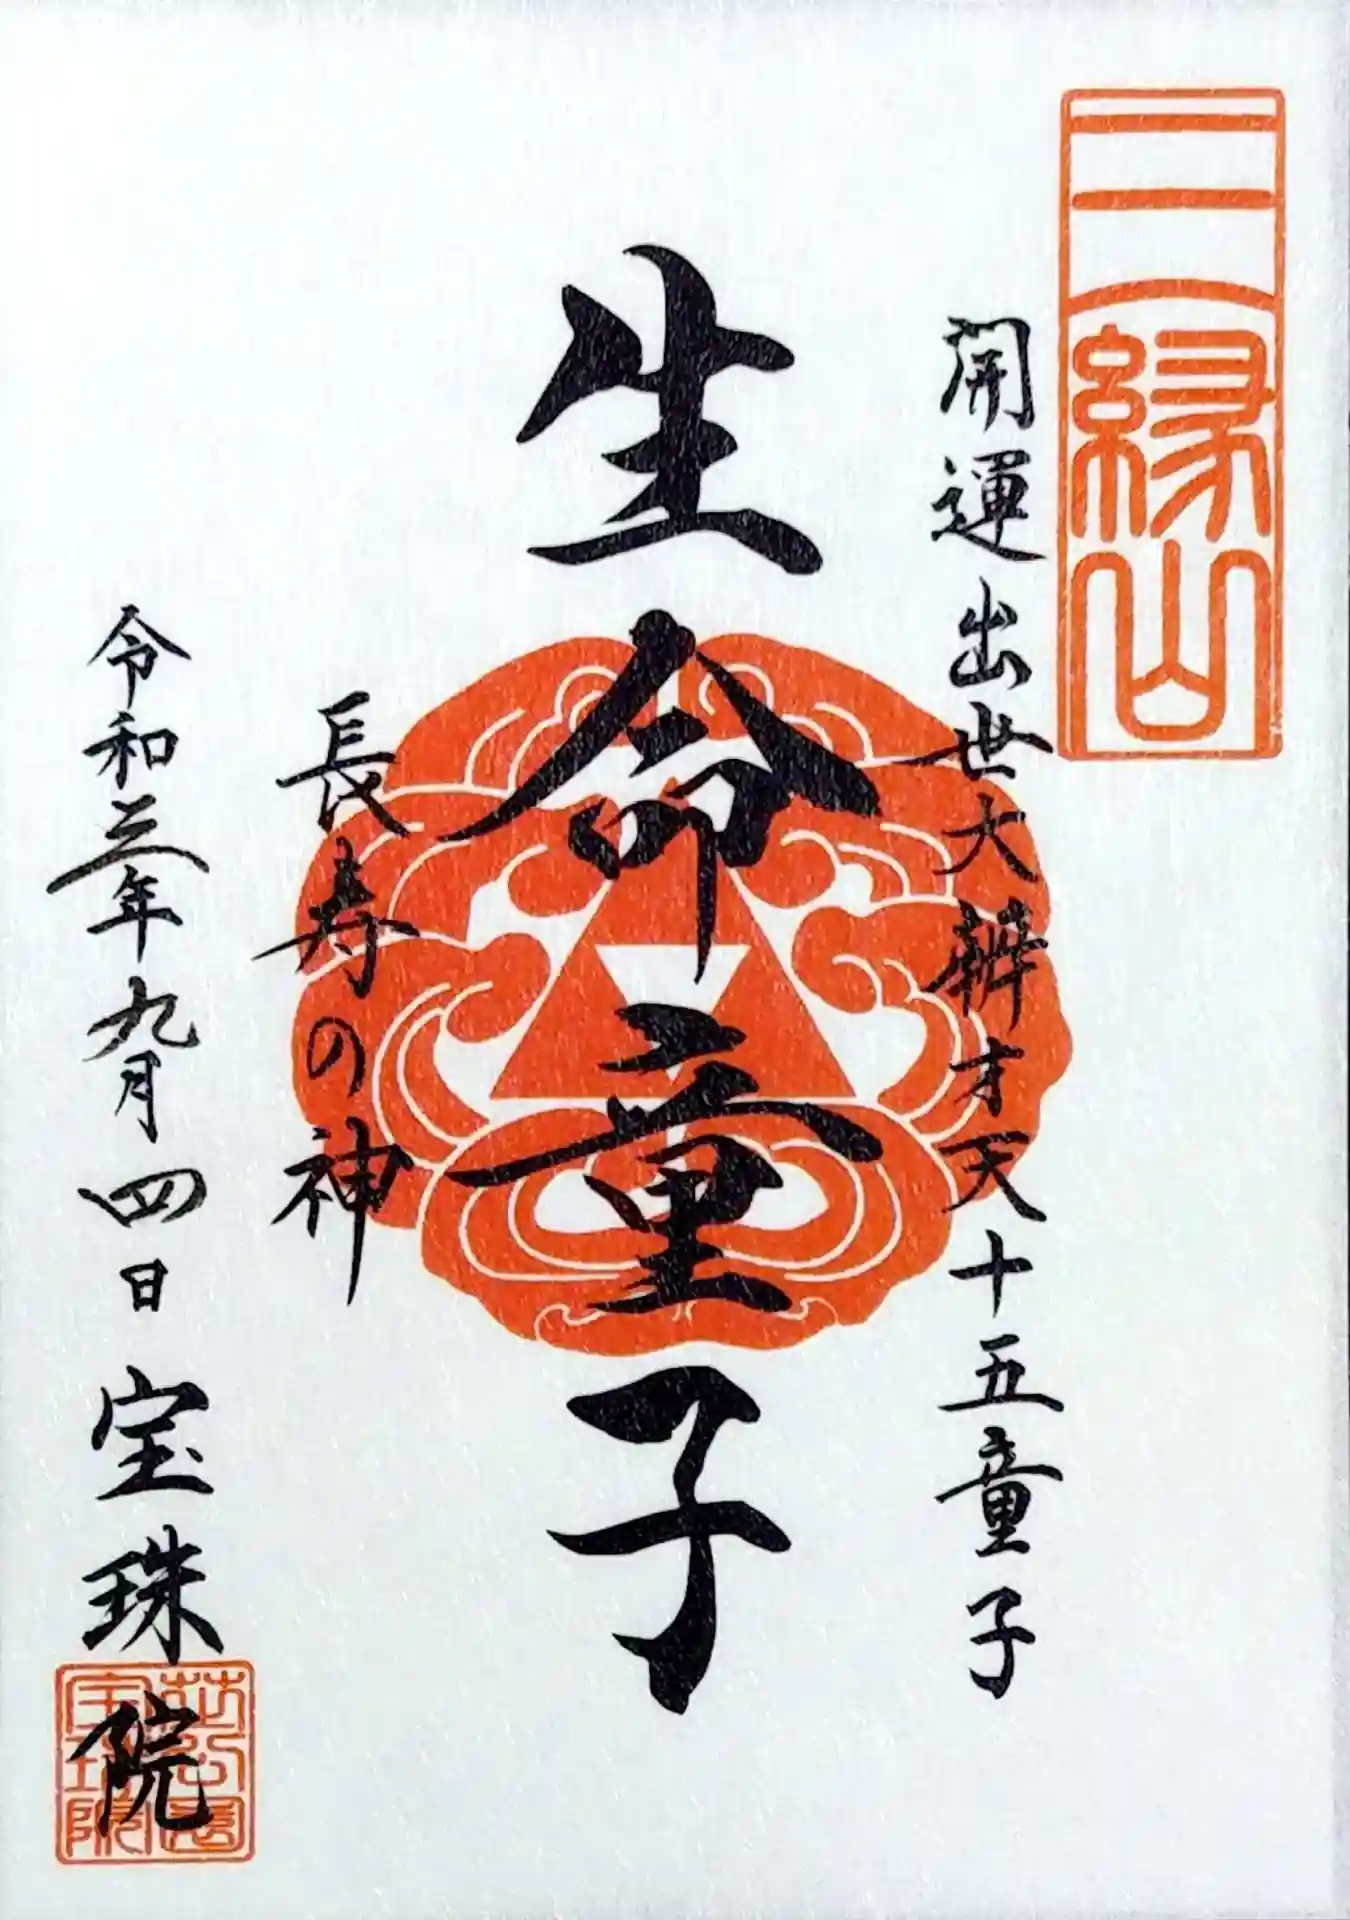 三縁山
開運出世大辨才天十五童子
生命童子
長寿の神
令和三年九月四日 宝珠院
芝公園
宝珠院